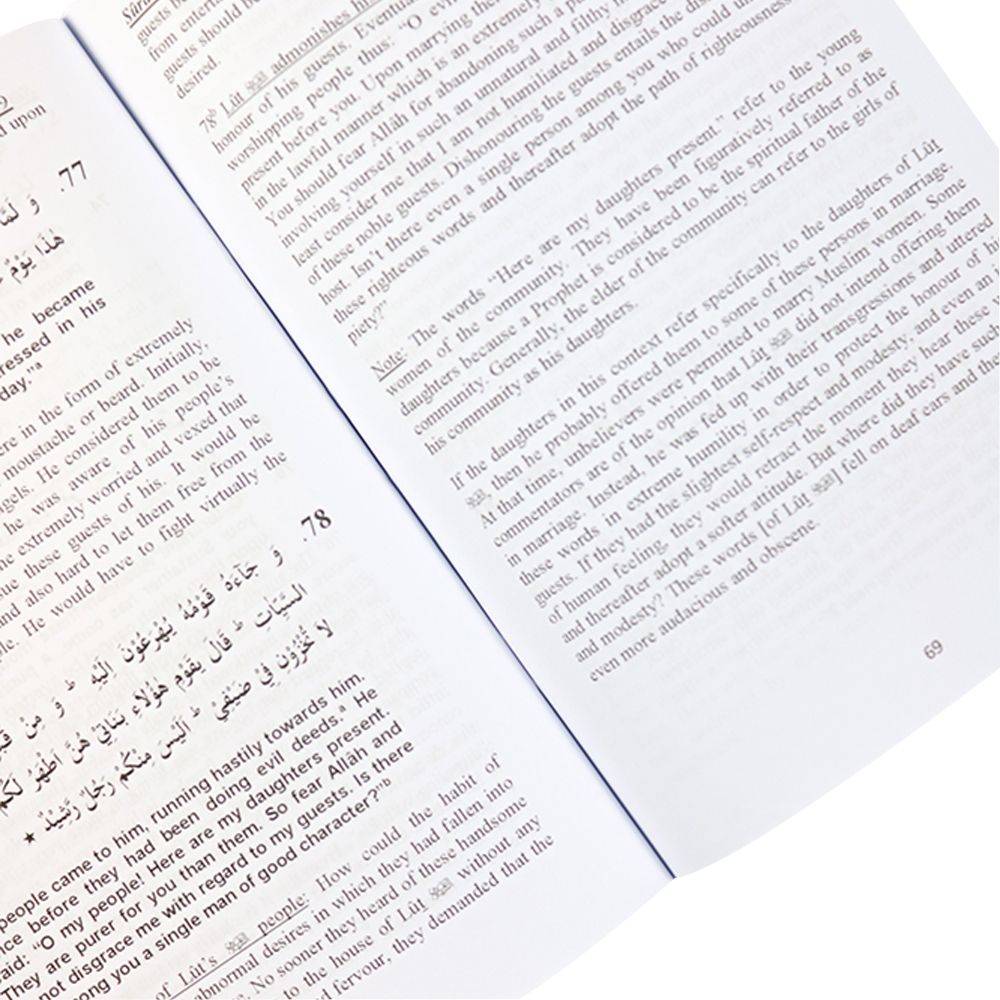 d upon
.77
وَ لَمَّا
هٰذَا يَوْمٌ
he became
ressed in his
day."ᵃ
ere in the form of extremely
moustache or beard. Initially,
ngels. He considered them to be
he was aware of his people's
me extremely worried and vexed that
sue these guests of his. It would be
and also hard to let them free from the
ple. He would have to fight virtually the
.78
وَ جَآءَهٗ قَوْمُهٗ يُهْرَعُوْنَ اِلَيْهِ ط وَ مِنْ
السَّيِّاٰتِ ط قَالَ يٰقَوْمِ هٰٓؤُلَاۤءِ بَنَاتِيْ هُنَّ اَطْهَرُ لَكُمْ
لَا تُخْزُوْنِ فِيْ ضَيْفِيْ ط اَلَيْسَ مِنْكُمْ رَجُلٌ رَّشِيْدٌ ★
people came to him, running hastily towards him.
nce before they had been doing evil deeds.ᵃ He
said: "O my people! Here are my daughters present.
They are purer for you than them. So fear Allāh and
not disgrace me with regard to my guests. Is there
mong you a single man of good character?"ᵇ
of Lūt's people: How could the habit of
abnormal desires in which they had fallen into
e. No sooner they heard of these handsome
to the house of Lūt without any
d fervour, they demanded that the
guests be
from entertaining
guests should be
desired.
78ᵇ Lūt admonishes his
honour of his guests. Eventually
worshipping people thus: "O
present before you. Upon marrying them
in the lawful manner which is an extremely
You should fear Allāh for abandoning such a
involving yourself in such an unnatural and filthy
least consider me that I am not humiliated and disgraced
of these noble guests. Dishonouring the guests entails the
host. Isn't there even a single person among you who could
these righteous words and thereafter adopt the path of righteousness
piety?"
Note: The words "Here are my daughters present." refer to the young
women of the community. They have been figuratively referred to as
daughters because a Prophet is considered to be the spiritual father of the
community. Generally, the elder of the community can refer to the girls of
his community as his daughters.
If the daughters in this context refer specifically to the daughters of Lūt
, then he probably offered them to some of these persons in marriage.
At that time, unbelievers were permitted to marry Muslim women. Some
commentators are of the opinion that Lūt did not intend offering them
in marriage. Instead, he was fed up with their transgressions and uttered
these words in extreme humility in order to protect the honour of his
guests. If they had the slightest self-respect and modesty, and even an
of human feeling, they would retract the moment they hear these
and thereafter adopt a softer attitude. But where did they have such
and modesty? These words [of Lūt ] fell on deaf ears and
even more audacious and obscene.
69